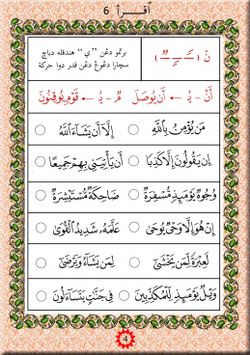 أقرأ 6
نْ ( ـًـ ـٍـ ـٌـ )
برتمو دڠن "ي" هندقله دباچ
سچارا دڠوڠ دڠن قدر دوا حركة
أَنْ - يُ ← أَن يُوصَلَ مٌ - يُ ← قَوْمٌ يُوقِنُونَ
مَن يُؤْمِنُ بِاللَّهِ ○ إِلَّا أَن يَشَاءَ اللَّهُ ○
إِن يَقُولُونَ إِلَّا كَذِبًا ○ أَن يَأْتِيَنِي بِهِمْ جَمِيعًا ○
وُجُوهٌ يَوْمَئِذٍ مُّسْفِرَةٌ ○ ضَاحِكَةٌ مُّسْتَبْشِرَةٌ ○
إِنْ هُوَ إِلَّا وَحْيٌ يُوحَى ○ عَلَّمَهُ شَدِيدُ الْقُوَى ○
لَعِبْرَةً لِّمَن يَخْشَى ○ لِمَن يَشَاءُ وَيَرْضَى ○
وَيْلٌ يَوْمَئِذٍ لِّلْمُكَذِّبِينَ ○ فِي جَنَّاتٍ يَتَسَاءَلُونَ ○
4